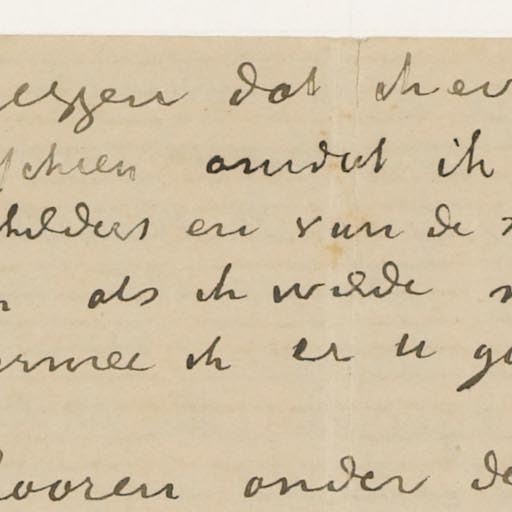 zeggen dat ik er
schien omdat ik
schilders en van de
als ik wilde
ermee ik er u
hooren onder de